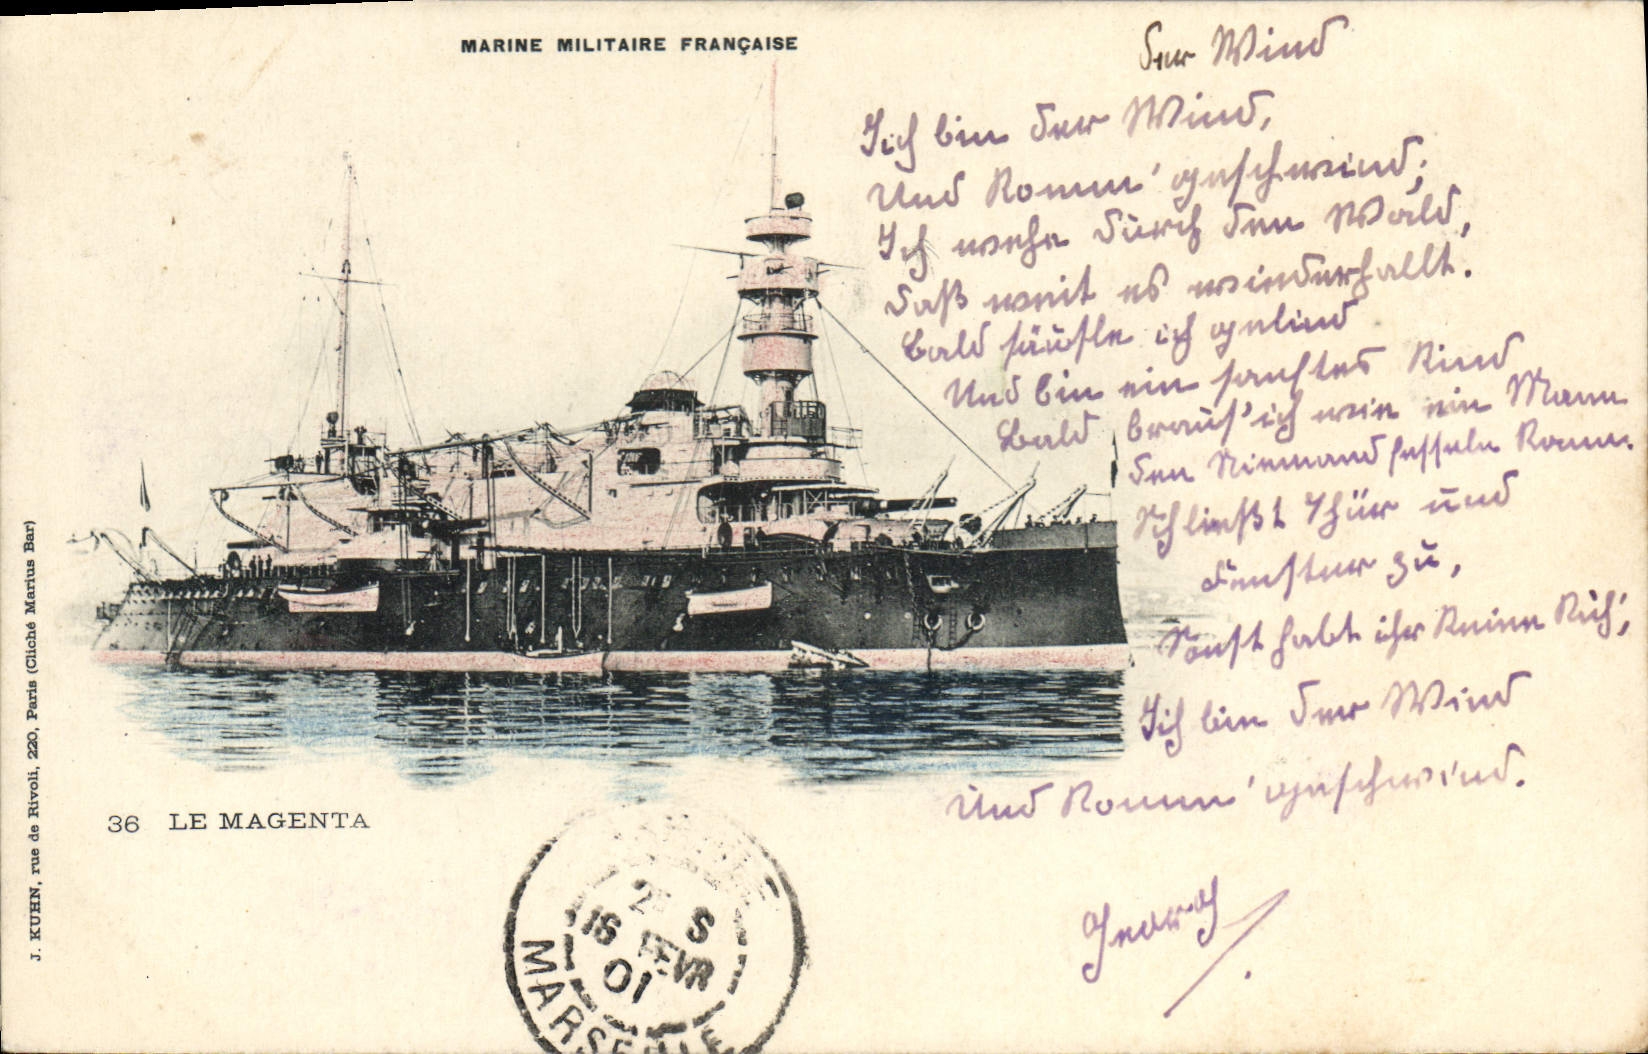 MARINE MILITAIRE FRANÇAISE
Der Wind
Ich bin der Wind,
Und komm' geschwind;
Ich wehe durch den Wald,
daß weit es wiederhallt.
Bald säusle ich gelind
Und bin ein sanftes Kind
Bald braus' ich wie ein Mann
den Niemand fesseln kann.
Schließt Thür und
Fenster zu,
Sonst habt ihr keine Ruh',
Ich bin der Wind
Und komm' geschwind.
Georg
36 LE MAGENTA
J. KUHN, rue de Rivoli, 220, Paris (Cliché Marius Bar)
S
16 FEVR
01
MARSEILLE